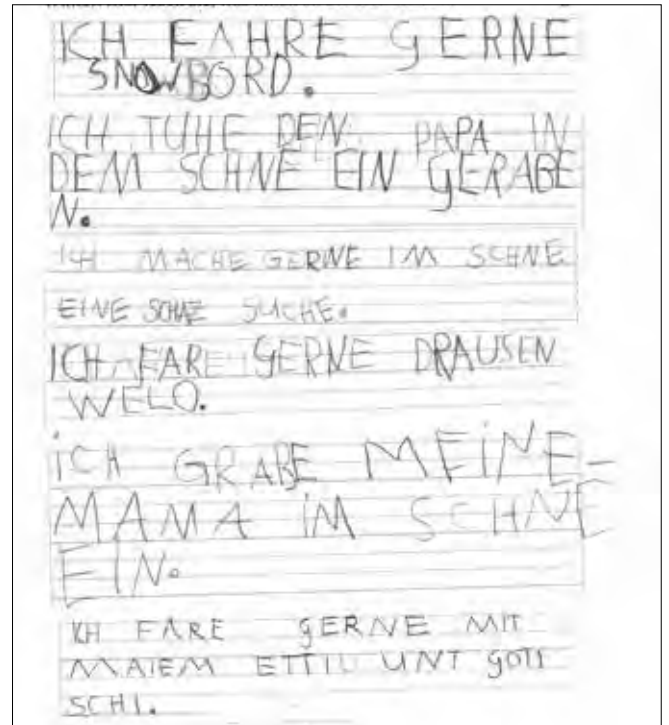 ICH FAHRE GERNE
SNOWBORD.
ICH TUHE DEN PAPA IN
DEM SCHNE EIN GERABE
N.
ICH MACHE GERNE IM SCHNE
EINE SCHAZ SUCHE.
ICH FARE GERNE DRAUSEN
WELO.
iCH GRABE MEiNE-
MAMA iM SCHNE
EIN.
ICH FARE GERNE MIT
MAIEM ETTIL UNT GOTI
SCHI.